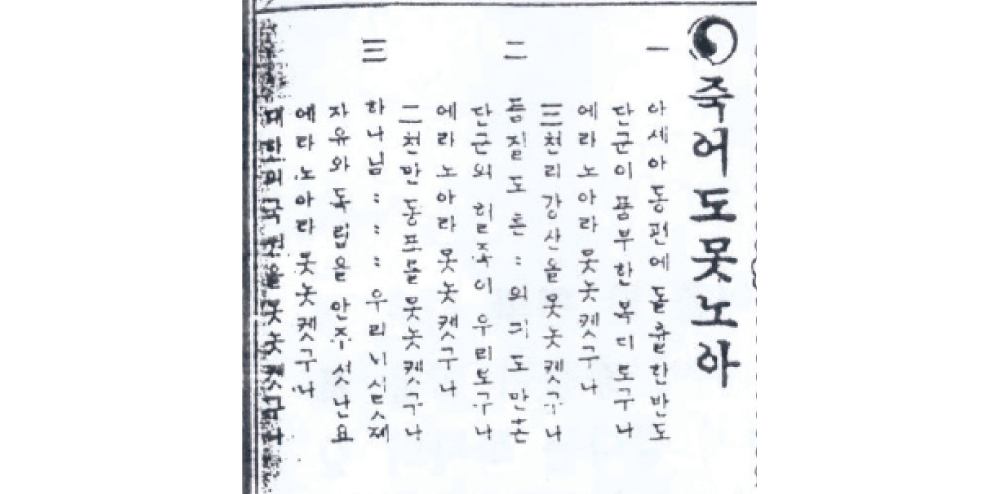 죽어도못노아
一
아세아동편에돌출한반도
단군이품부한복디로구나
에라노아라못놋켓구나
三천리강산을못놋켓구나
二
품질도튼ː의긔도만흔
단군의혈족이우리로구나
에라노아라못놋켓구나
二천만동포를못놋켓구나
三
하나님ːːː우리
자유와독립을안주섯난요
에라노아라못놋켓구나
대한의국권을못놋켓구나